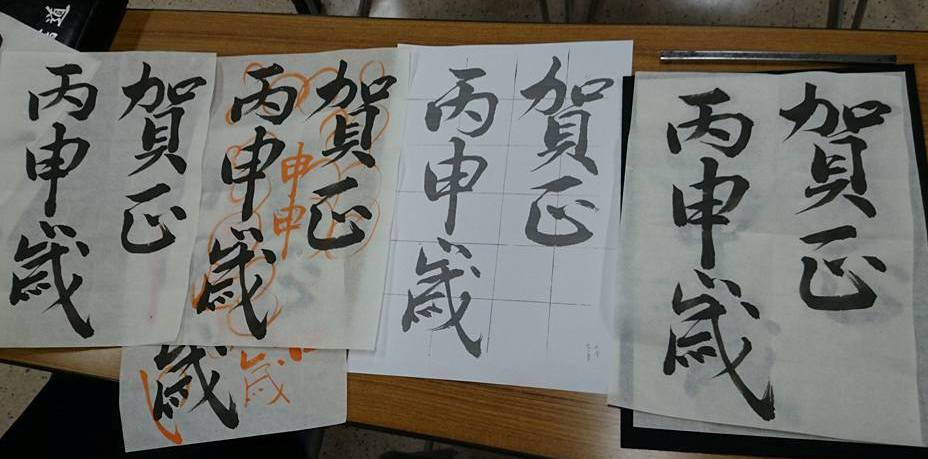 賀正
丙申歳
賀正
丙申歳
賀正
申申
丙申歳
賀正
丙申歳
歳
歳